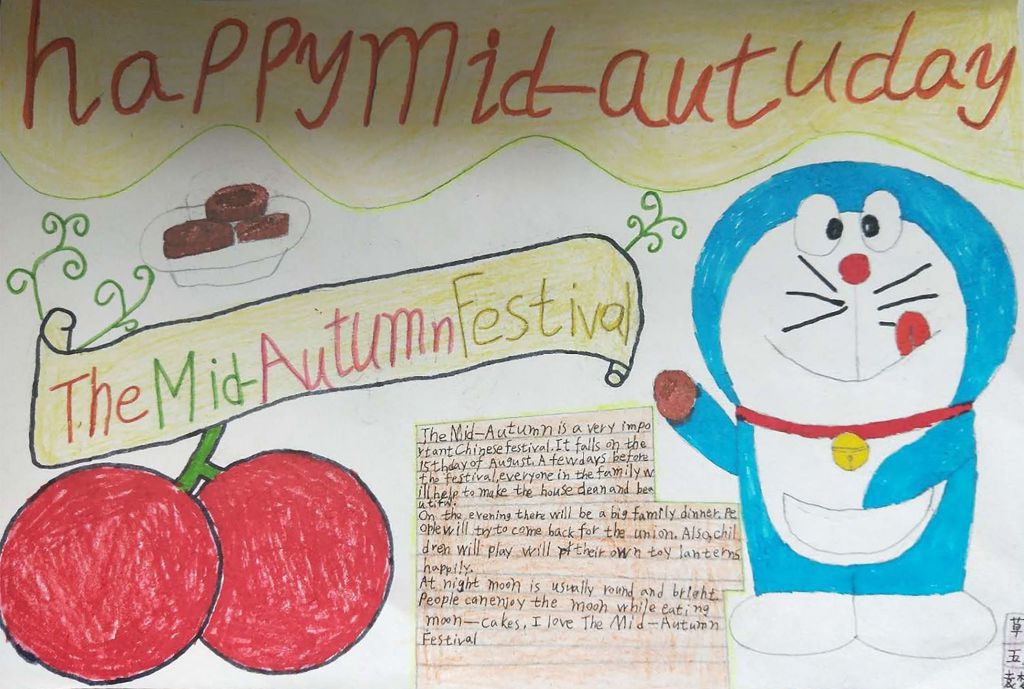 happy Mid-autuday
The Mid-Autumn Festival
The Mid-Autumn is a very impo
rtant Chinese festival. It falls on the
15th day of August. A few days before
the festival, everyone in the family w
ill help to make the house clean and bea
utiful.
On the evening there will be a big family dinner. Pe
ople will try to come back for the union. Also, chil
dren will play will their own toy lanterns
happily.
At night moon is usually round and bright.
People can enjoy the moon while eating
moon-cakes, I love The Mid-Autumn
Festival
草
五